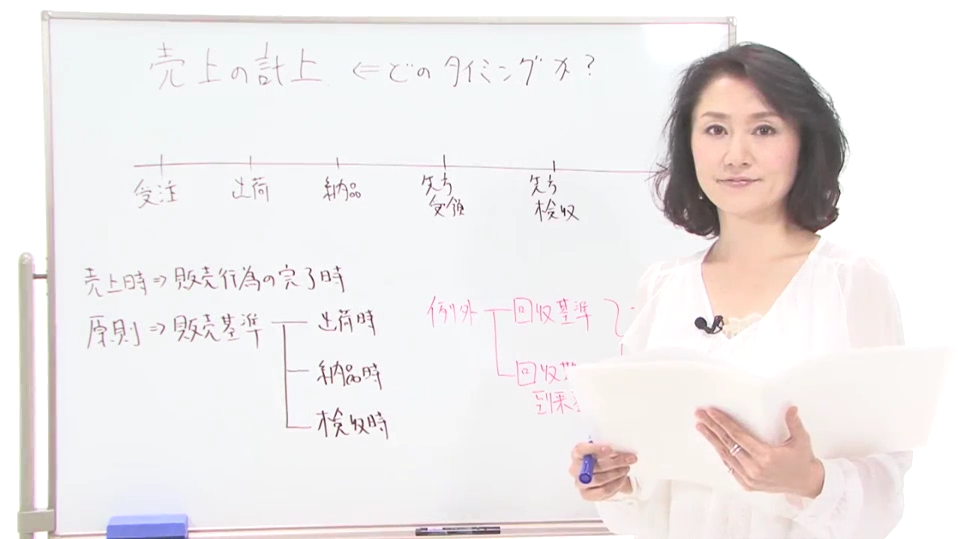 売上の計上 ⇐どのタイミングか?
受注 出荷 納品 先方受領 先方検収
売上時⇒販売行為の完了時
原則⇒販売基準 出荷時
納品時
検収時
例外 回収基準
回収期
到来